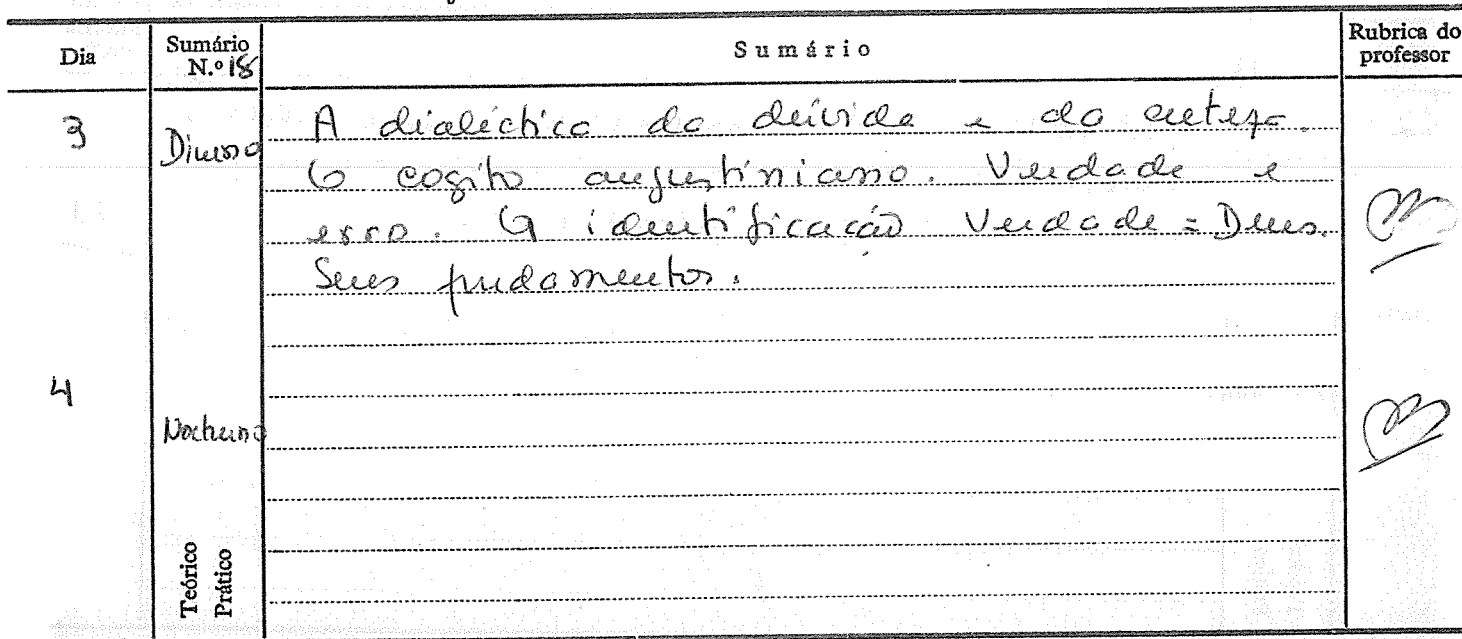 Dia
Sumário N.º 18
Sumário
Rubrica do professor
3
Diurno
A dialéctica da dúvida e da certeza.
O cogito augustiniano. Verdade e
erro. A identificação Verdade = Deus.
Seus fundamentos.
4
Nocturno
Teórico
Prático